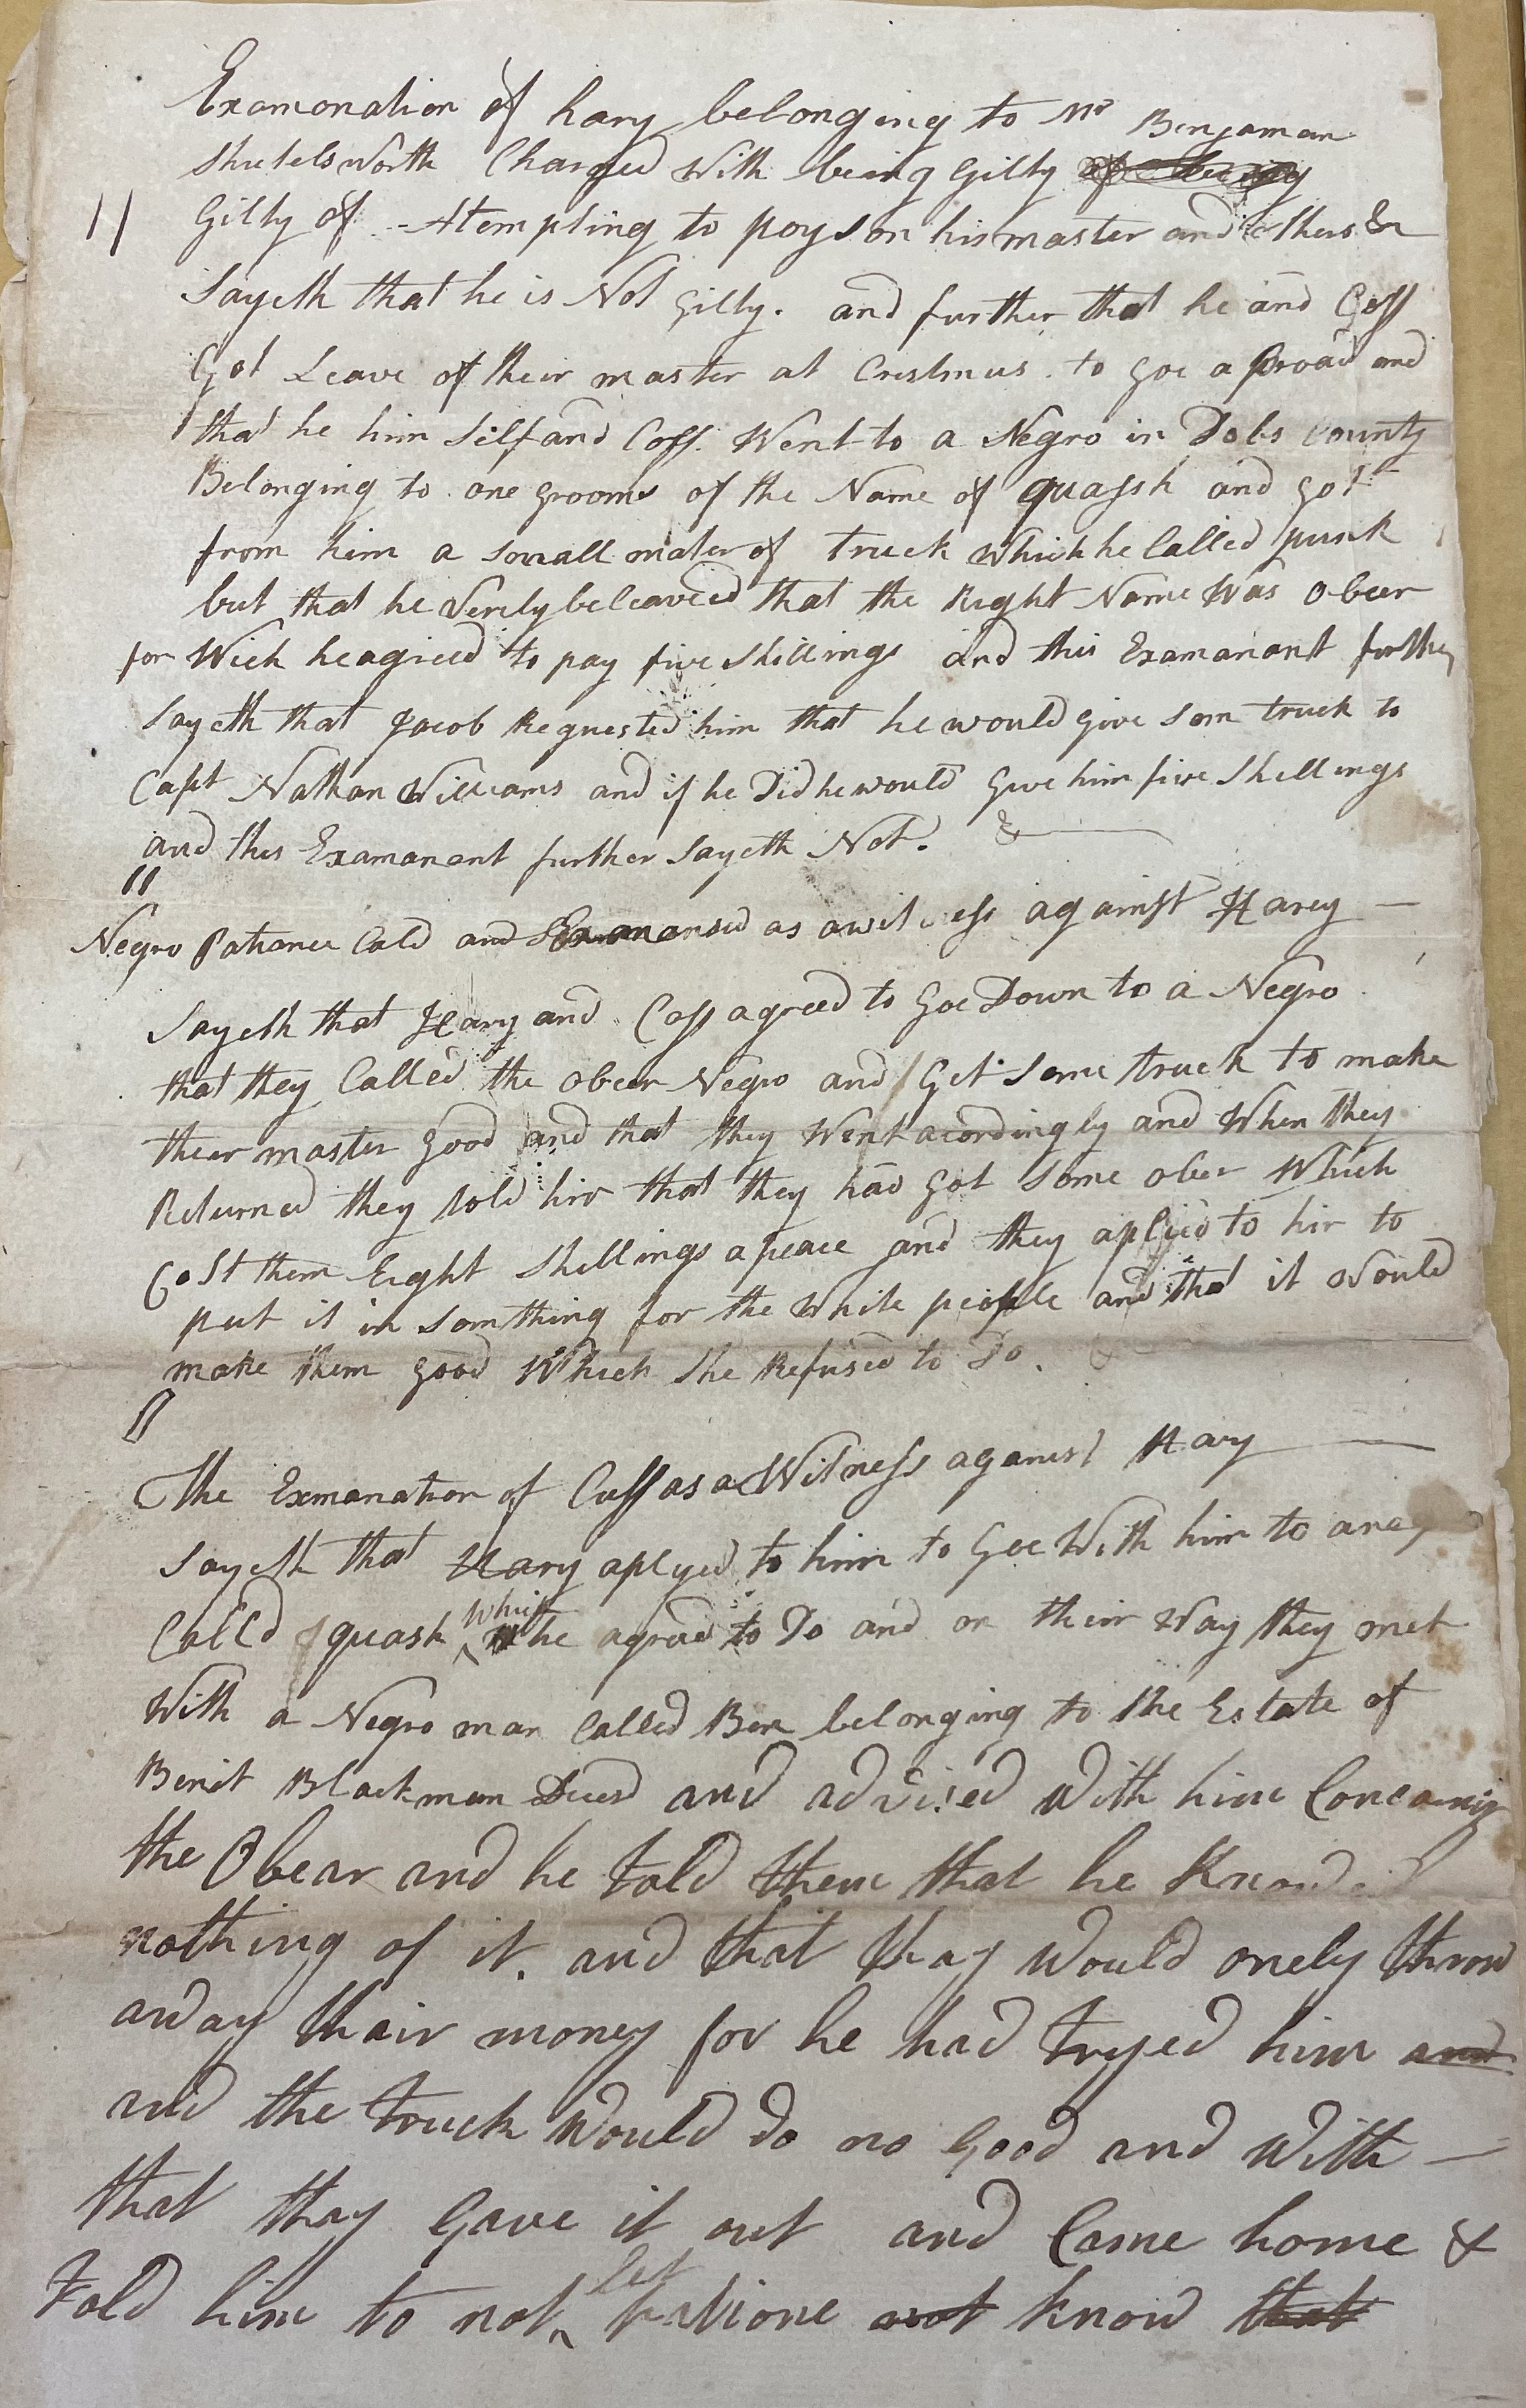 Examonation of hary belonging to Mr Benjaman
Shutelsworth Charged With being Gilty of being
Gilty of Atempting to poyson his master and others &
Sayeth that he is Not Gilty. and further that he and Coff
Got Leave of their master at Crestmus to Goe a broad and
that he him Self and Coff. Went to a Negro in Dobs county
Belonging to one Grooms of the Name of quassh and got
from him a small mater of truck which he Called punk
but that he Verily beleaveed that the Right Name Was Obeer
for Wich he agreed to pay five Shillings and this Examanant further
Sayeth that Jacob Requested him that he would Give som truck to
Capt Nathan Williams and if he Did he would Give him five Shillings
and this Examanant further Sayeth Not. &
Negro Patience Cald and Examaned as a witness against Harey
Sayeth that Hary and Coff agreed to Goe Down to a Negro
that they Called the obeer Negro and Get Some truck to make
their master Good and that they Went acordingly and When they
Returned they told hir that they had Got Some ober Which
Cost them Eight Shillings a peace and they aplied to hir to
put it in Somthing for the White people and that it Would
make them Good Which She Refused to Do.
The Exmanation of Cuff as a Witness against Hary
Sayeth that Hary aplyed to him to Goe With him to a neg
Called quash Which he agreed to Do and on their Way they met
With a Negro man Called Ben belonging to the Estate of
Benit Blackman Decsd and advised With him Concarning
the Obear and he told them that he Knowd
nothing of it. and that thay Would onely throw
away thair money for he had tryed him and
and the truck Would do no Good and With
that thay Gave it out and Came home &
Told him to not let patione not know that